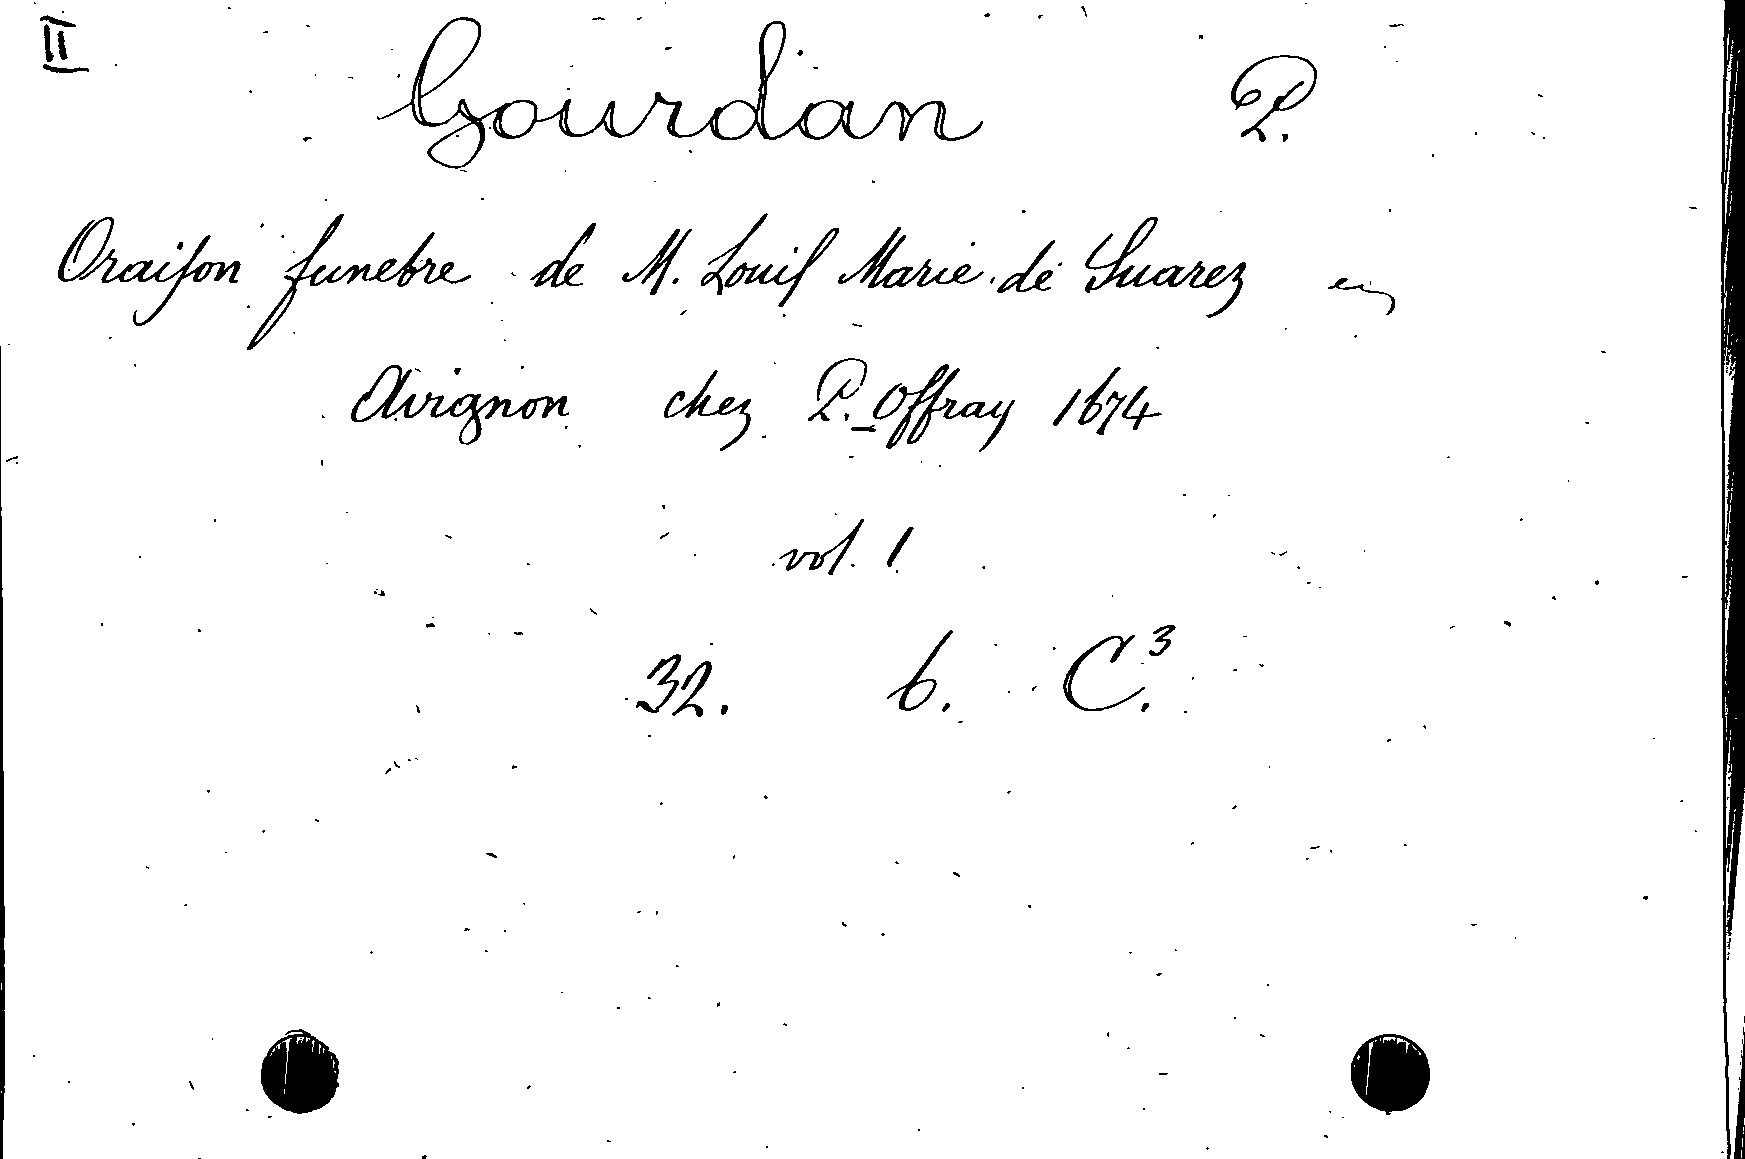 II
Gourdan P.
Oraiſon funebre de M. Louiſ Marie de Suarez en
Avignon chez P. Offray 1674
vol. 1
32. 6. C.³